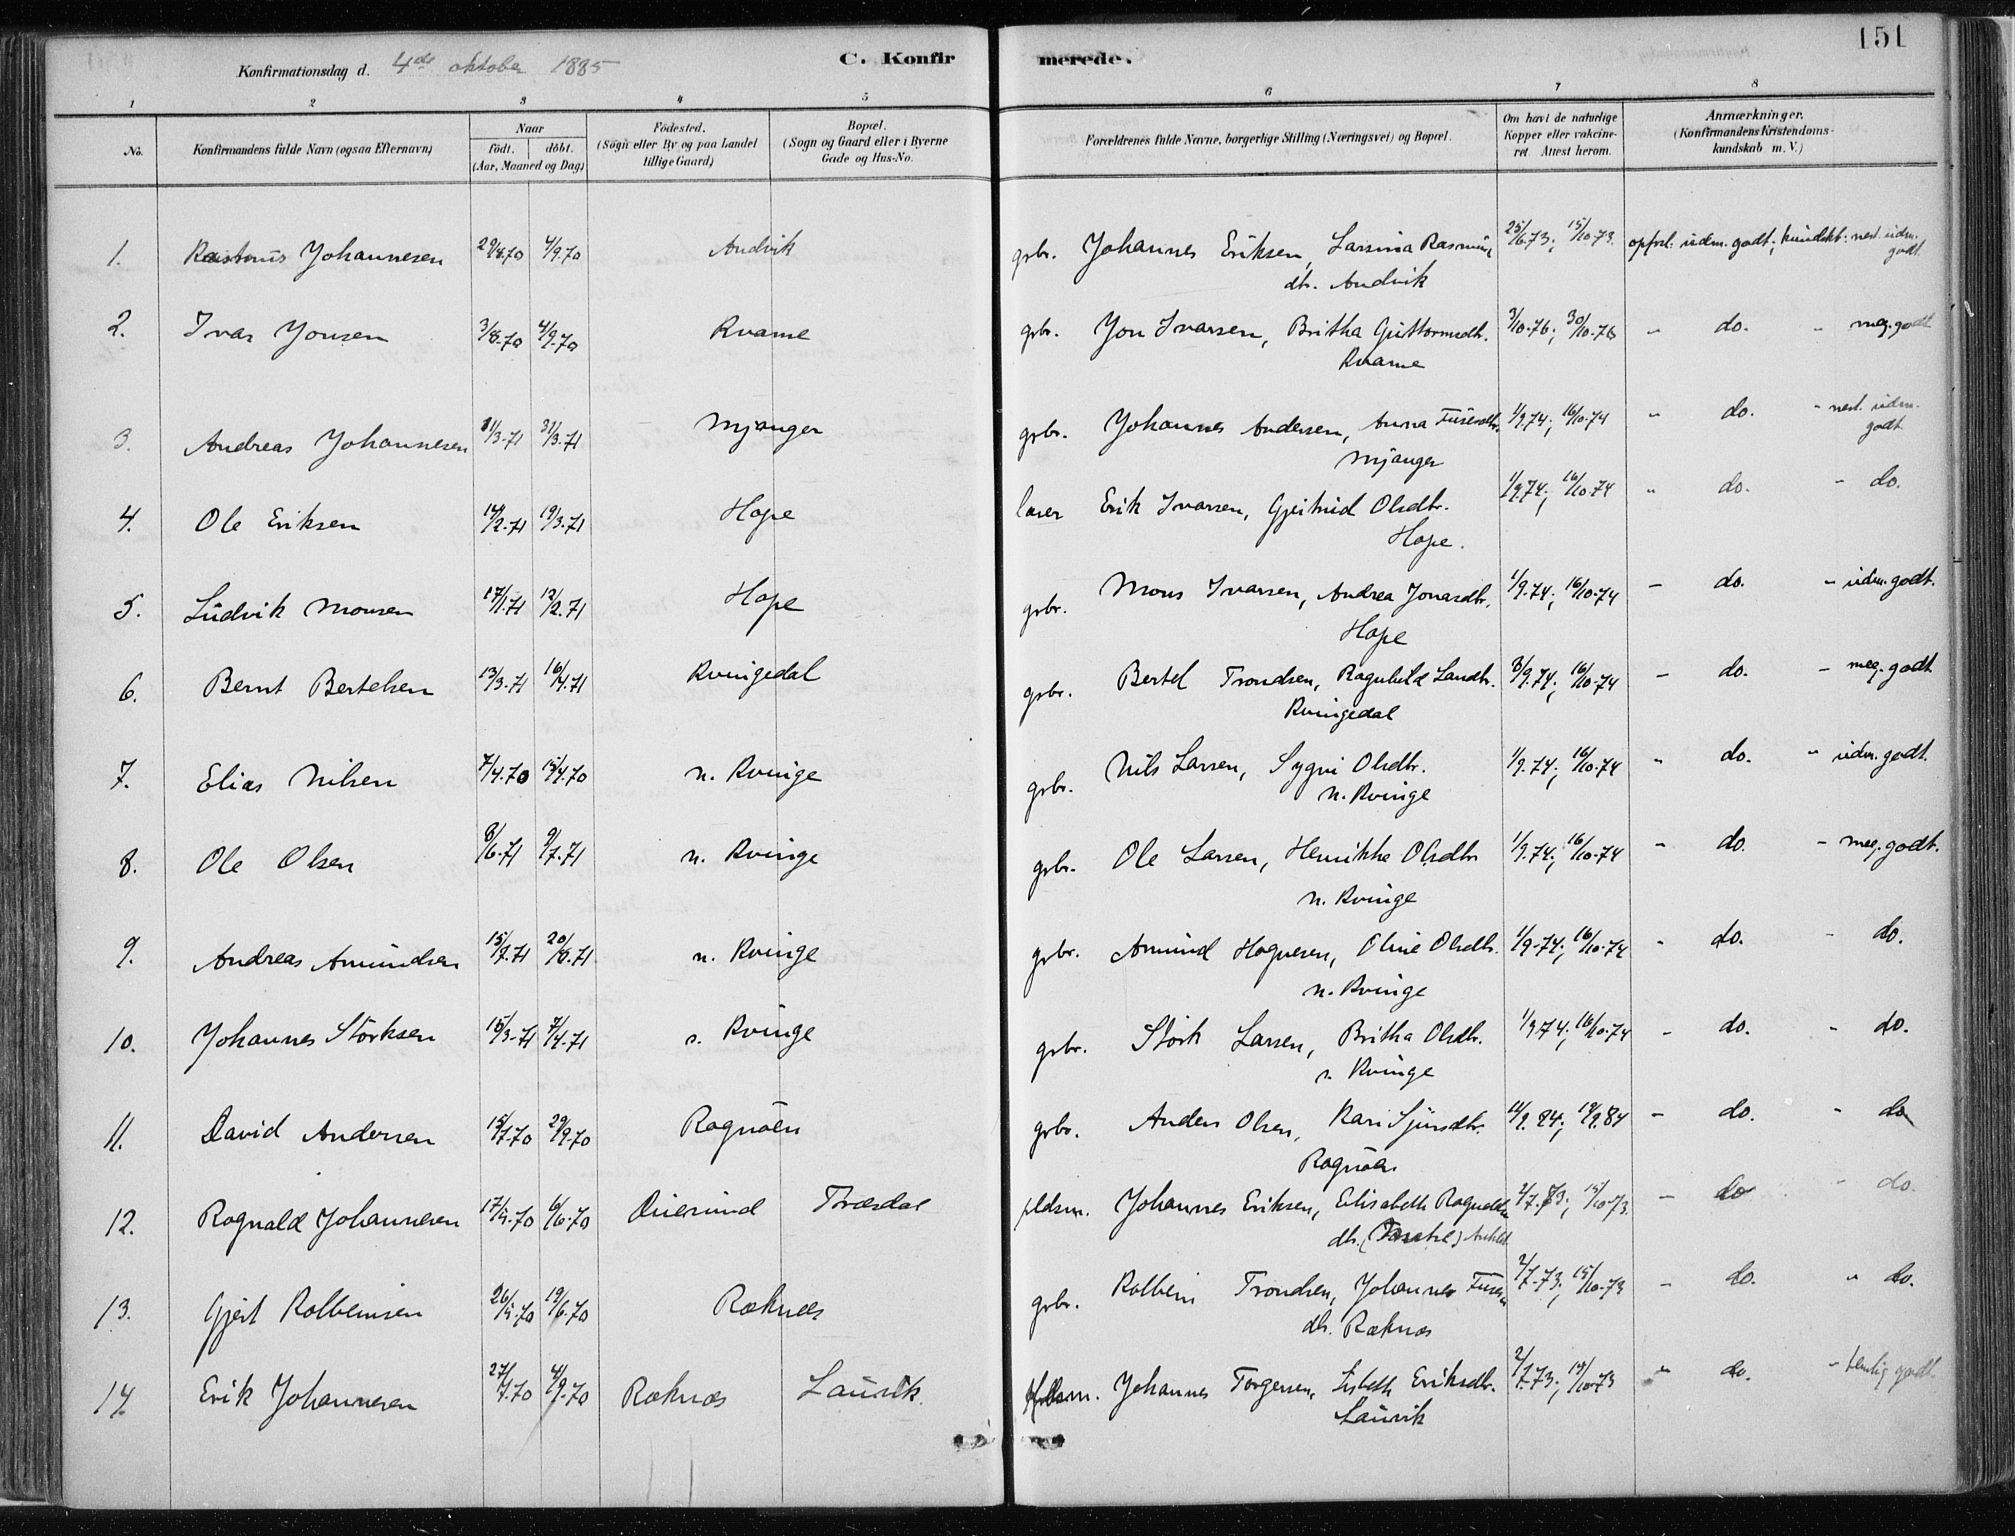 151
Konfirmationsdag d. 4de oktober 1885 C. Konfirmerede.
1 2 3 4 5 6 7 8
No. Konfirmandens fulde Navn (ogsaa Efternavn) Naar født. døbt. (Aar, Maaned og Dag) Fødested. (Sogn eller By og paa Landet tillige Gaard) Bopæl. (Sogn og Gaard eller i Byerne Gade og Hus-No. Forældrenes fulde Navne, borgerlige Stilling (Næringsvei) og Bopæl. Om havt de naturlige Kopper eller vakcineret Attest herom. Anmærkninger. (Konfirmandens Kristendomskundskab m. V.)
1. Rasmus Johannesen 29/8.70 4/9.70 Andvik gbr. Johannes Eriksen, Larsina Rasmus 25/6.73; 15/10.73. opførl. udm. godt; kundskb: nest. udm. godt.
dtr. Andvik
2. Ivar Jonsen 3/8.70 4/9.70 Kvame gbr. Jon Ivarsen, Britha Guttormsdtr. 3/10.76; 30/10.76 " do. " meg. godt
Kvame
3. Andreas Johannesen 11/3.71 31/3.71 Mjanger gbr. Johannes Andersen, Anna Fusesdtr. 1/9.74; 16/10.74 " do. " nest. udm. godt
Mjanger
4. Ole Eriksen 14/2.71 19/3.71 Hope lærer Erik Ivarsen, Gjertrud Olsdtr. 1/9.74; 16/10.74 " do. " do.
Hope.
5. Ludvik Monsen 17/1.71 12/2.71 Hope gbr. Mons Ivarsen, Andrea Jonasdtr. 1/9.74; 16/10.74 " do. " udm. godt.
Hope
6. Bernt Bertelsen 13/3.71 16/4.71 Kvingedal gbr. Bertel Trondsen, Ragnhild Larsdtr. 3/9.74; 16/10.74 " do. " meg. godt
Kvingedal
7. Elias Nilsen 7/4.70 15/4.70 n. Kvinge gbr. Nils Larsen, Sygni Olsdtr. 1/9.74; 16/10.74 " do. " udm. godt.
n. Kvinge
8. Ole Olsen 8/6.71 9/7.71 n. Kvinge gbr. Ole Larsen, Henrikke Olsdtr 1/9.74; 16/10.74 " do. " meg. godt.
n. Kvinge
9. Andreas Amundsen 15/7.71 20/8.71 n. Kvinge gbr. Amund Hognesen, Oline Olsdtr. 1/9.74; 16/10.74 " do. " do.
n. Kvinge
10. Johannes Størksen 15/3.71 7/4.71 s. Kvinge gbr. Størk Larsen, Britha Olsdtr. 1/9.74; 16/10.74 " do. " do.
s. Kvinge
11. David Andersen 15/7.70 29/9.70 Rognøen gbr. Anders Olsen, Kari Sjursdtr. 11/9.84; 19/9.84 " do. " do
Rognøen
12. Rognald Johannesen 17/5.70 6/6.70 Træsdal pldsm. Johannes Eriksen, Elisabeth Rognalds 2/7.73; 15/10.73. " do " do.
dtr.
13. Gjert Kolbeinsen 26/5.70 19/6.70 Reknæs gbr. Kolbein Trondsen, Johannes 2/7.73; 15/10.73 " do. " do.
dtr. Reknæs
14. Erik Johannesen 27/7.70 4/9.70 Reknæs Laurik. pldsm. Johannes Torgersen, Lisbeth Eriksdtr. 2/7.73; 15/10.73 " do. " temlig godt.
Laurik